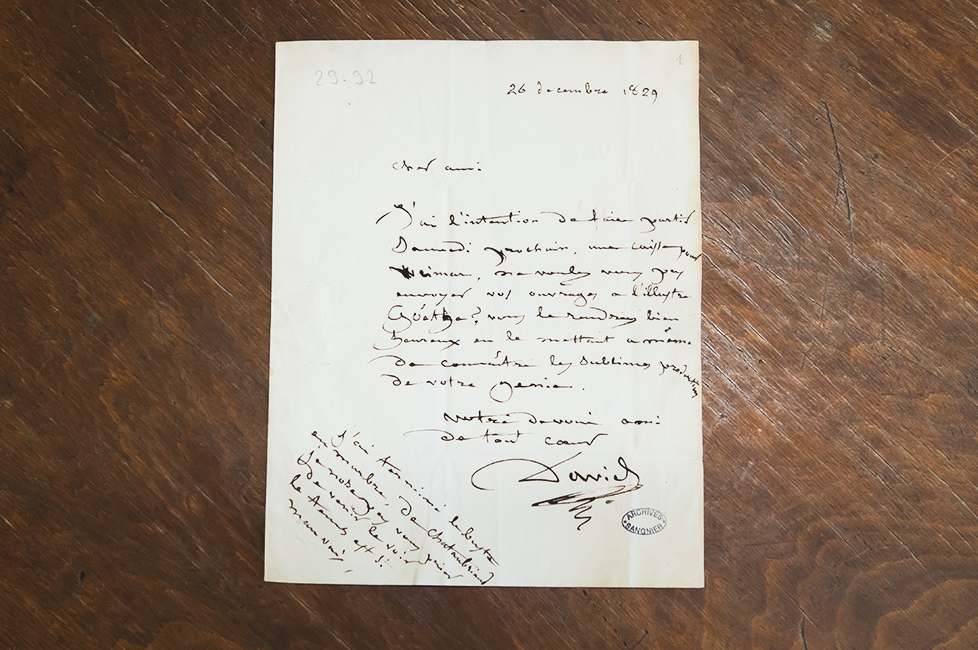 29-92
1
26 decembre 1829
cher ami
J'ai l'intention de faire partir
Samedi prochain, une caisse pour
Weimar, ne voulez vous pas
envoyer vos ouvrages a l'illustre
Goëthe? vous le rendrez bien
heureux en le mettant a même
de connaître les sublimes productions
de votre genie.
votre devoué ami
de tout cœur
David
ARCHIVES
BANQNIER
J'ai terminé le buste
en marbre de Chateaubriand
Je n'ose pas vous prier
de venir le voir
le temps est si
mauvais,